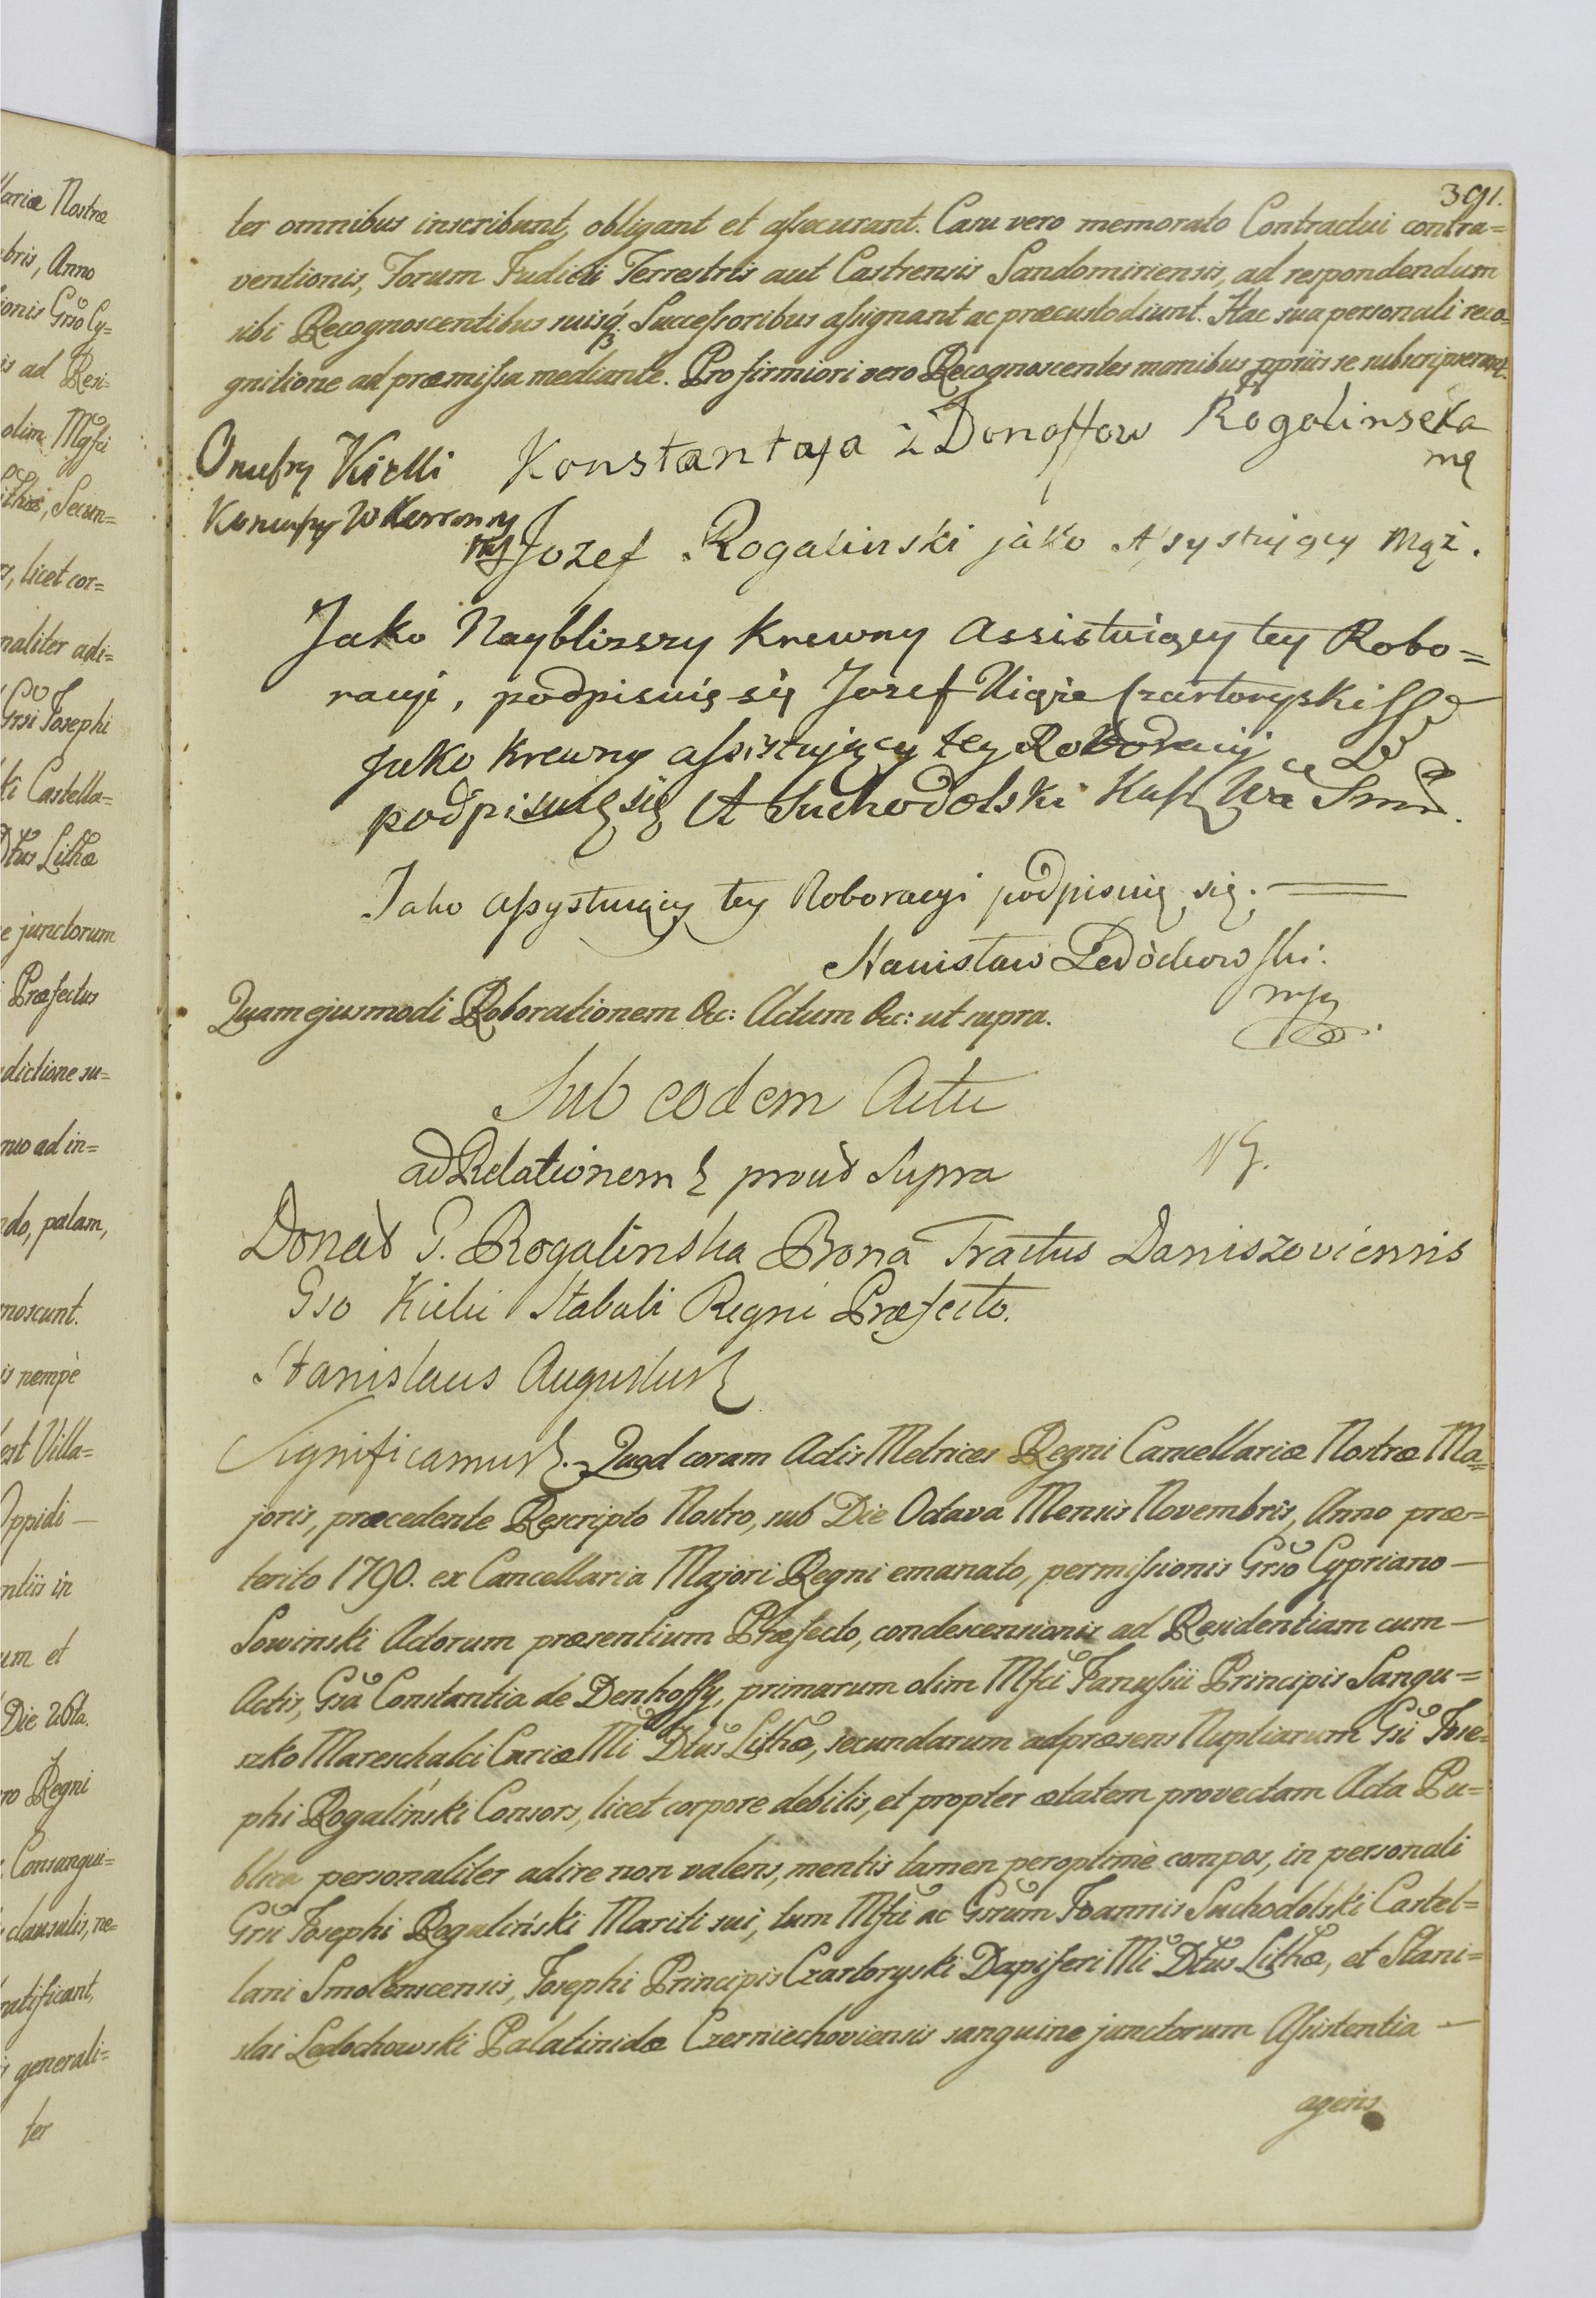 lariæ Nostræ
bris, Anno
ionis Grso Cy=
is ad Resi=
olim Mgfci
Lithæ, Secun=
s, licet cor=
naliter adi=
Grsi Josephi
ki Castella=
Dtus Lithæ
e junctorum
Præfectus
dictione su=
nuo ad in=
ndo, palam,
noscunt.
is nempè
est Villa=
Oppidi —
ntiis in
um et
Die 26ta.
ro Regni
Consangui=
clausulis, ne=
ratificant,
s generali=
ter
391.
ter omnibus inscribunt, obligant et assecurant. Casu vero memorato Contractui contra=
ventionis, Forum Judicii Terrestris aut Castrensis Sandomiriensis, ad respondendum
sibi Recognoscentibus suisq. Successoribus assignant ac præcustodiunt. Hac sua personali reco=
gnitione ad præmissa mediante. Pro firmiori vero Recognoscentes manibus ppriis se subscripserunt.
Onufry Kicki Konstantaja z Donoffow Rogolinseka
mą
Koniuszy W Koronny
mp Jozef Rogalinski jako Asystuiący Mąż.
Jako Nayblizszy Krewny assistuiący tey Robo=
racyi, podpisuię się Jozef Xiąże Czartoryski
Jako Krewny assistujący tey Roboracyi
podpisuię się A Suchodolski Kasz
Jako assystuiący tey Roboracyi podpisuię się. —
Stanisław Ledòchowski.
mp
Quam ejusmodi Roborationem &c: Actum &c: ut supra.
Sub eodem Actu
ad Relationem & prout Supra
NG.
Donat G. Rogalinska Bona Tractus Daniszoviensis
Gso Kicki Stabuli Regni Præfecto.
Stanislaus Augustus &
Significamus &. Quod coram Actis Metrices Regni Cancellariæ Nostræ Ma=
joris, præcedente Rescripto Nostro, sub Die Octava Mensis Novembris, Anno præ=
terito 1790. ex Cancellaria Majori Regni emanato, permissionis Grso Cypriano —
Sowinski Actorum præsentium Præfecto, condescensionis ad Residentiam cum —
Actis, Gsa Constantia de Denhoffy, primarum olim Mfci Janussii Principis Sangu=
szko Mareschalci Curiæ Mi Dtus Lithæ, secundarum ad præsens Nuptiarum Gsi Jose=
phi Rogaliński Consors, licet corpore debilis, et propter ætatem provectam Acta Pu=
blica personaliter adire non valens, mentis tamen peroptimè compos, in personali
Grsi Josephi Rogaliński Mariti sui, tum Mfci ac Gsrum Joannis Suchodolski Castel=
lani Smolenscensis, Josephi Principis Czartoryski Dapiferi Mi Dtus Lithæ, et Stani=
slai Ledochowski Palatinidæ Czerniechoviensis sanguine junctorum Assistentia —
agens